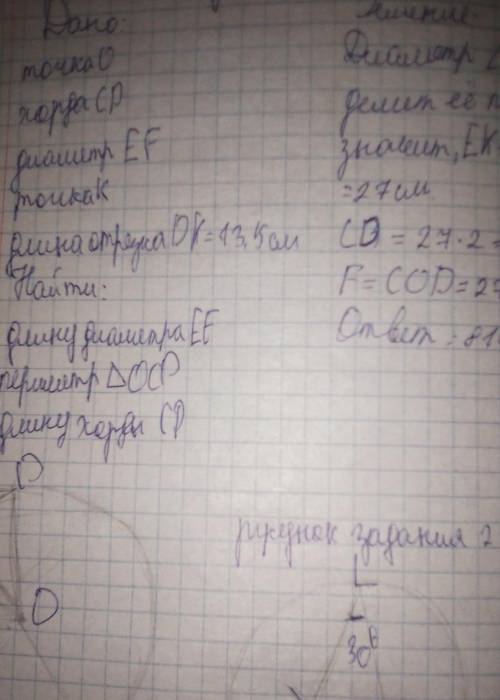 Дано:
точка О
хорда CD
диаметр EF
точка К
длина отрезка ОК=13,5см
Найти:
длину диаметра EF
периметр △OCD
длину хорды CD
Решение:
Диаметр
делит её
значит, EK
=27см
CD = 27·2=
F=COD=27
Ответ: 81
D
O
рисунок задания 2
L
30°